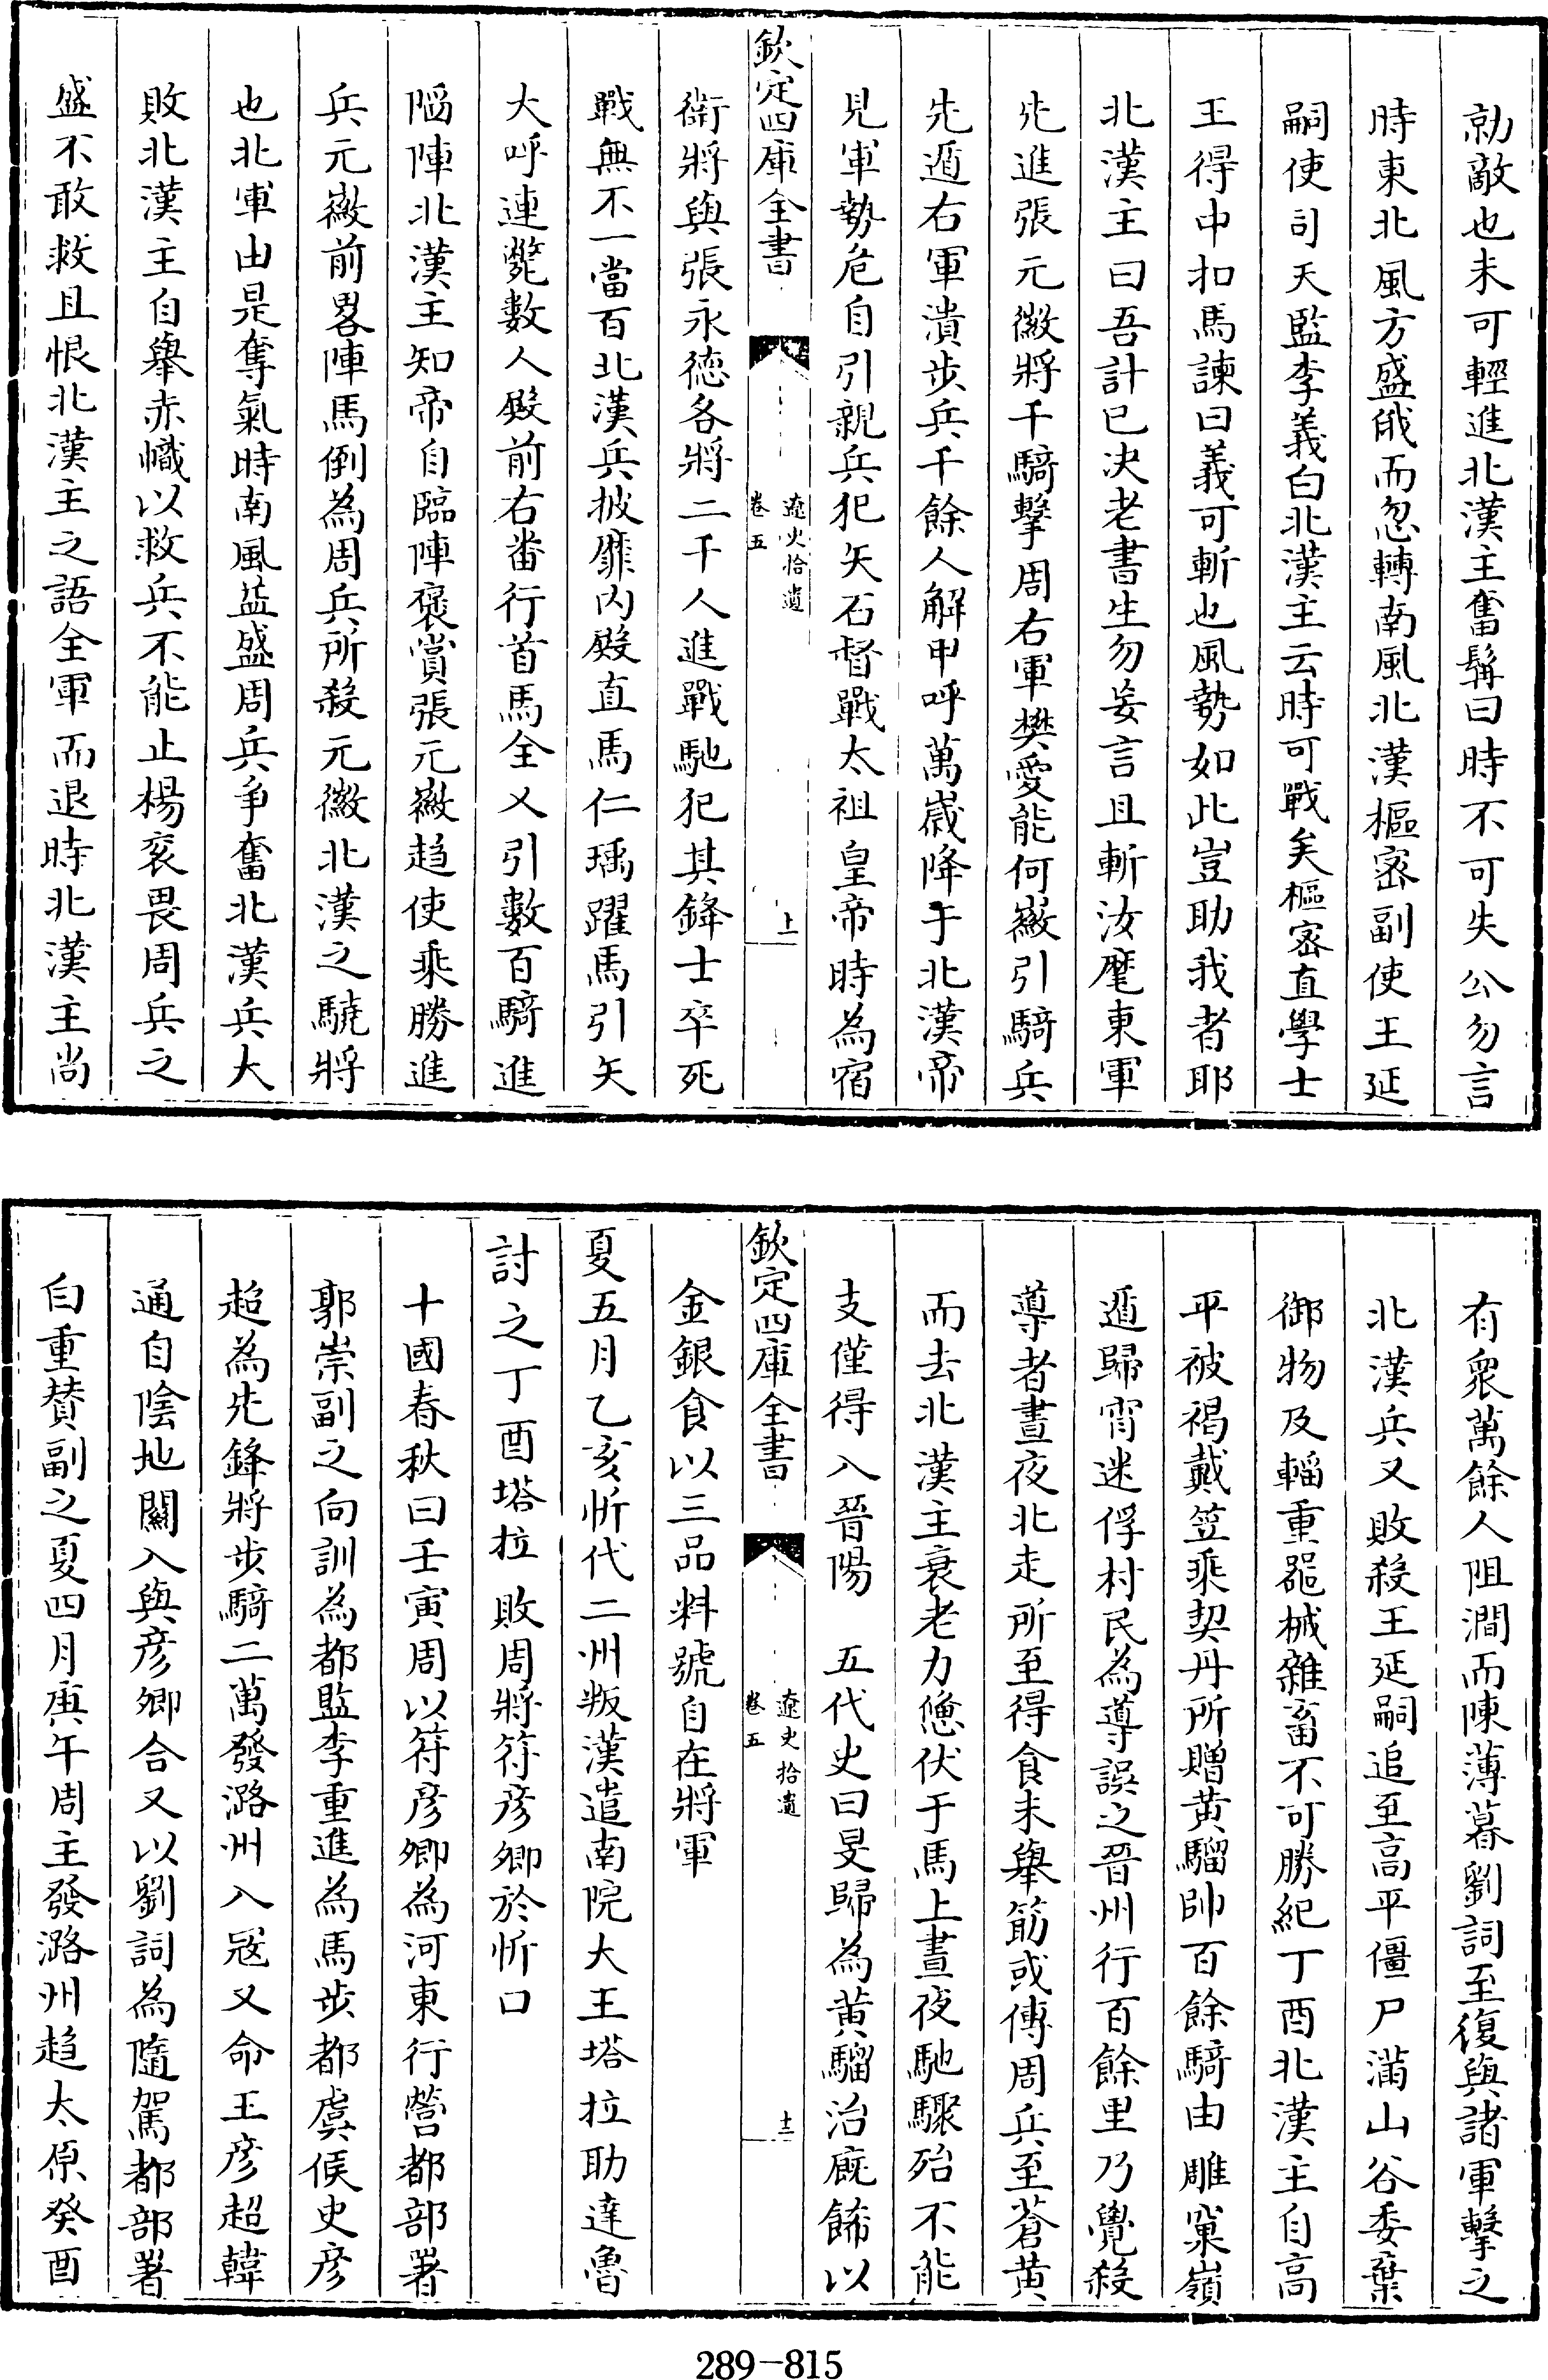 勍敵也未可輕進北漢主奮髯曰時不可失公勿言
時東北風方盛俄而忽轉南風北漢樞密副使王延
嗣使司天監李義白北漢主云時可戰矣樞密直學士
王得中扣馬諫曰義可斬也風勢如此豈助我者耶
北漢主曰吾計已决老書生勿妄言且斬汝麾東軍
先進張元徽將千騎擊周右軍樊愛能何徽引騎兵
先遁右軍潰步兵千餘人解甲呼萬歲降于北漢帝
見軍勢危自引親兵犯矢石督戰太祖皇帝時為宿
欽定四庫全書
遼史拾遺
卷五
十一
衛將與張永德各將二千人進戰馳犯其鋒士卒死
戰無不一當百北漢兵披靡内殿直馬仁瑀躍馬引矢
大呼連斃數人殿前右番行首馬全乂引數百騎進
陷陣北漢主知帝自臨陣褒賞張元徽趋使乘勝進
兵元徽前畧陣馬倒為周兵所殺元徽北漢之驍將
也北軍由是奪氣時南風益盛周兵爭奮北漢兵大
敗北漢主自舉赤幟以救兵不能止楊衮畏周兵之
盛不敢救且恨北漢主之語全軍而退時北漢主尚
有衆萬餘人阻澗而陳薄暮劉詞至復與諸軍擊之
北漢兵又敗殺王延嗣追至高平僵尸滿山谷委棄
御物及輜重噐械雜畜不可勝紀丁酉北漢主自高
平被褐戴笠乘契丹所贈黄騮帥百餘騎由雕窠嶺
遁歸宵迷俘村民為導誤之晉州行百餘里乃覺殺
導者晝夜北走所至得食未舉筯或傳周兵至蒼黄
而去北漢主衰老力憊伏于馬上晝夜馳驟殆不能
支僅得入晉陽　五代史曰旻歸為黄騮治廐餙以
欽定四庫全書
遼史拾遺
卷五
十二
金銀食以三品料號自在將軍
夏五月乙亥忻代二州叛漢遣南院大王塔拉助達魯
討之丁酉塔拉敗周將符彦卿於忻口
十國春秋曰壬寅周以符彦卿為河東行營都部署
郭崇副之向訓為都監李重進為馬步都虞候史彦
超為先鋒將步騎二萬發潞州入冦又命王彦超韓
通自陰地關入與彦卿合又以劉詞為隨駕都部署
白重賛副之夏四月庚午周主發潞州趋太原癸酉
289-815